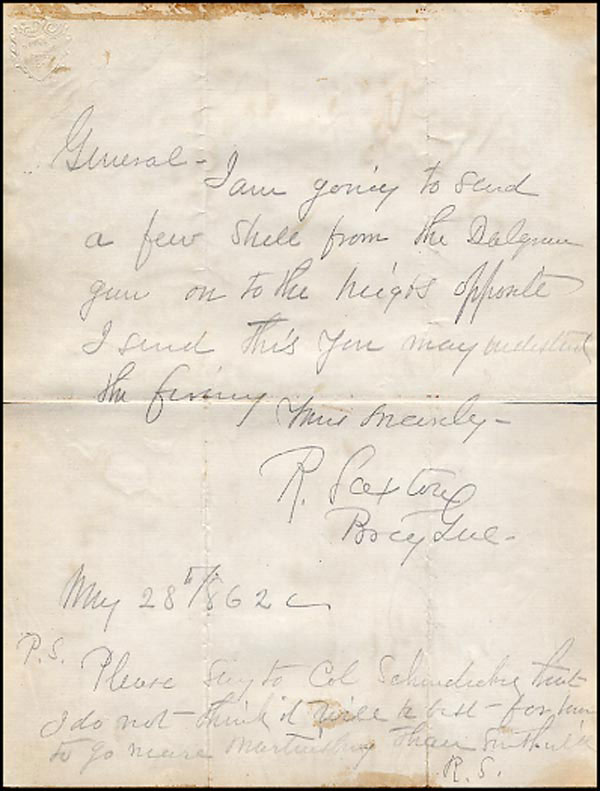 General - I am going to send
a few shell from the Dalgren
gun on to the heights opposite
I send this you may understand
the firing Yours Sincerely -
R. Saxton
Brig Gen -
May 28th/1862
P.S. Please say to Col that
I do not think it will be best for him
to go nearer Martinsburg than
R.S.